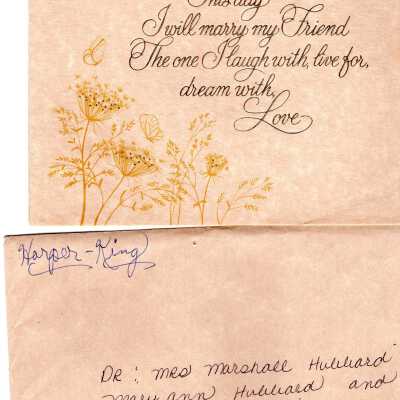 This day
I will marry my Friend
The one I laugh with, live for,
dream with,
Love
Harper-King
DR : MRS Marshall Hubbard
Mary Ann Hubbard and